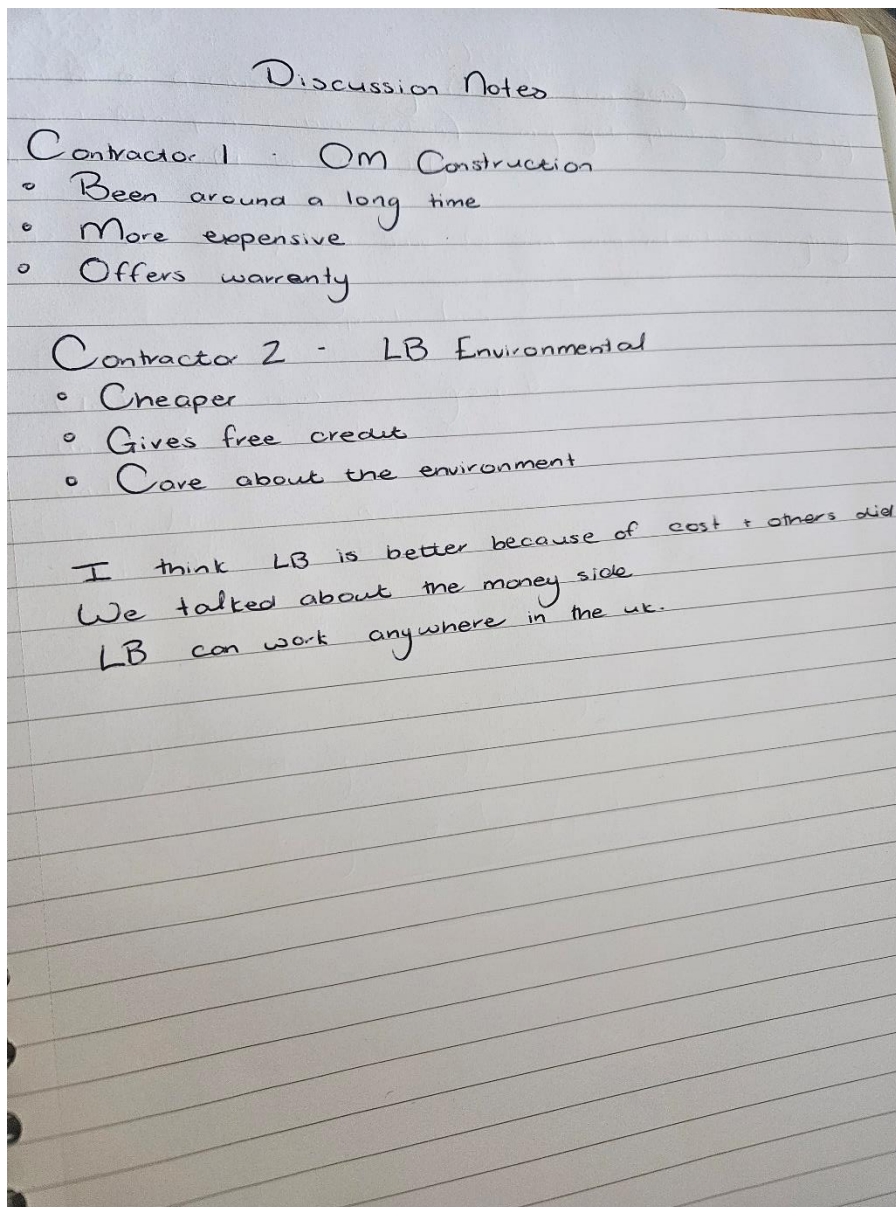 Discussion Notes
Contractor 1 - OM Construction
• Been around a long time
• More expensive
• Offers warrenty
Contractor 2 - LB Environmental
• Cheaper
• Gives free credit
• Care about the environment
I think LB is better because of cost + others did
We talked about the money side
LB can work anywhere in the uk.